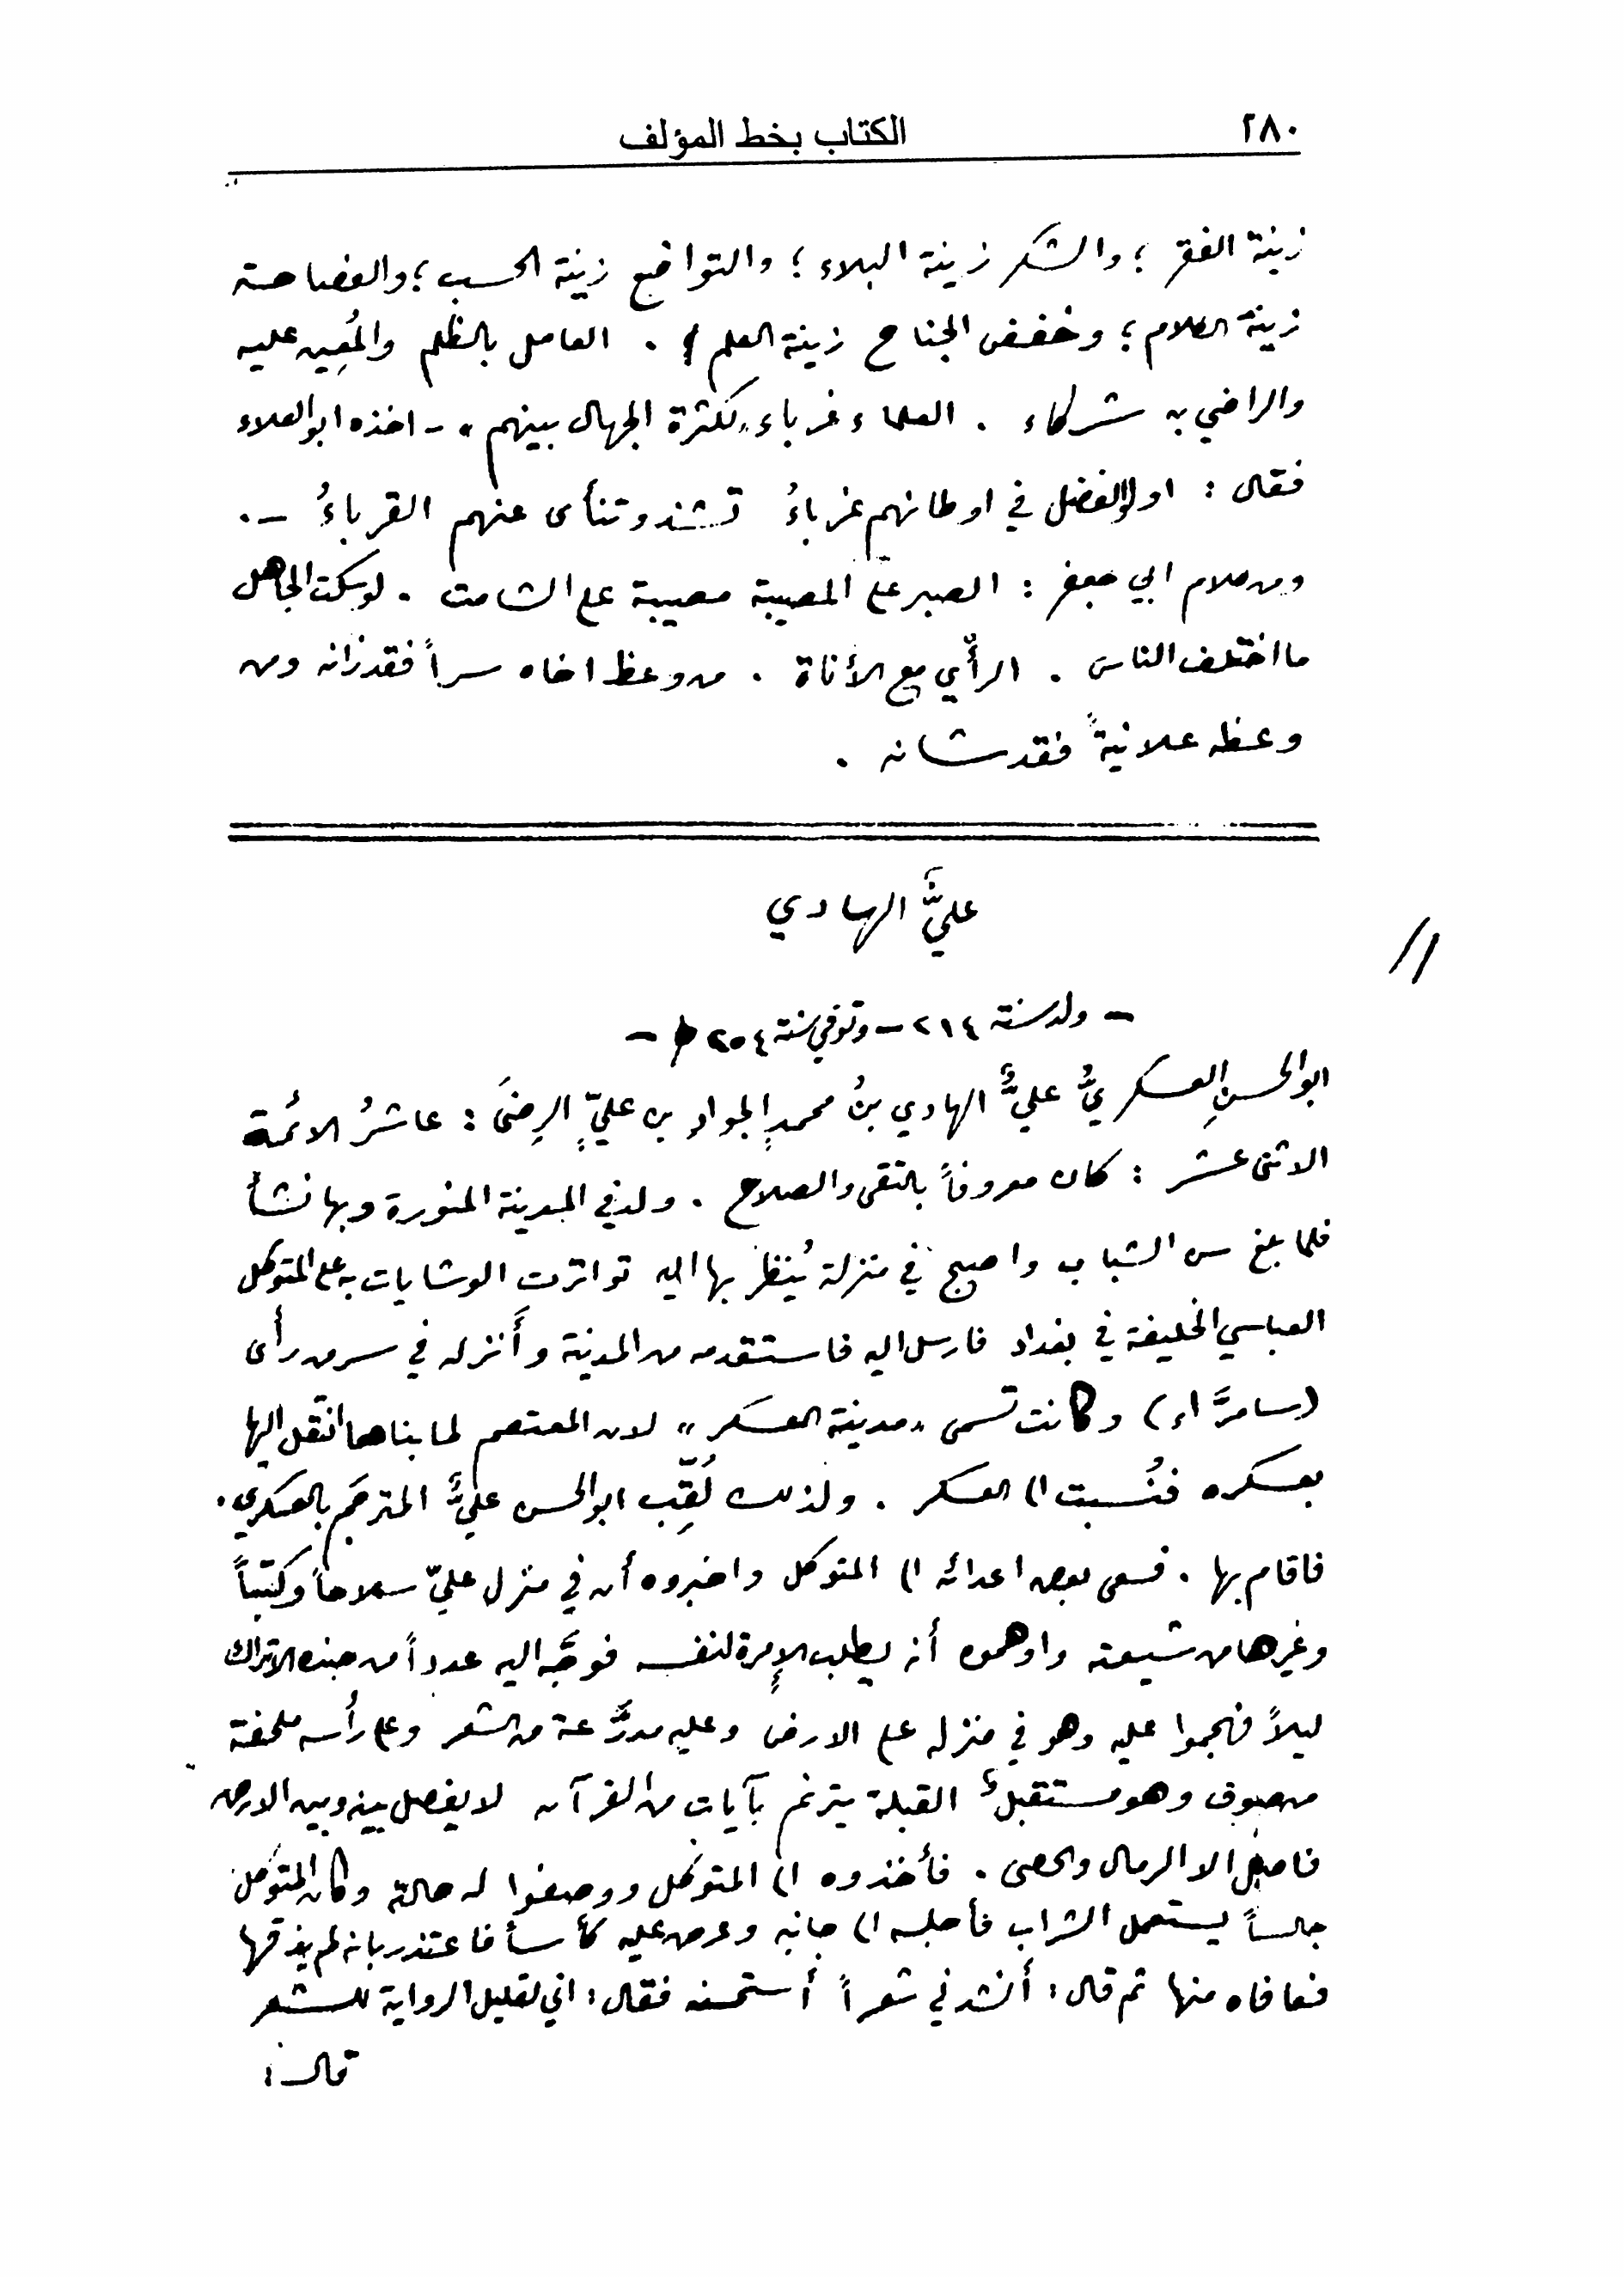 ٢٨٠
الكتاب بخط المؤلف
زينة الفقر ؛ والشكر زينة البلاء ؛ والتواضع زينة الحسب ؛ والفصاحة
زينة الكلام ؛ وخفض الجناح زينة العلم . العامل بالظلم والمُعِين عليه
والراضي به شركاء . العلماء غرباء لكثرة الجهال بينهم » - اخذه ابو العلاء
فقال : اولو الفضل في اوطانهم غرباءُ تشذ وتنأى عنهم القرباءُ - .
ومن كلام ابي جعفر : الصبر على المصيبة مصيبة على الشامت . لو سكت الجاهل
ما اختلف الناس . الرأي مع الأناة . من وعظ اخاه سراً فقد زانه ومن
وعظه علانيةً فقد شانه .
عليٌّ الهادي
١١
- ولد سنة ٢١٤ - وتوفي سنة ٢٥٤ -
ابو الحسنِ العسكريُّ عليٌّ الهادي بنُ محمدٍ الجوادِ بن عليٍّ الرِضَى : عاشرُ الائمة
الاثنى عشر : كان معروفاً بالتقى والصلاح . ولد في المدينة المنورة وبها نشأ
فلما بلغ سن الشباب واصبح في منزلة يُنظر بها اليه تواترت الوشايات به على المتوكل
العباسي الخليفة في بغداد فارسل اليه فاستقدمه من المدينة وأَنزله في سر من رأى
(سامرَّاء) وكانت تسمى «مدينة العسكر» لان المعتصم لما بناها انتقل اليها
بعسكره فنُسبت الى العسكر . ولذلك لُقِّب ابو الحسن عليٌّ المترجَم بالعسكري .
فاقام بها . فسعى بعض اعدائه الى المتوكل واخبروه أن في منزل عليّ سلاحاً وكتباً
وغيرها من شيعته واوهموه أنه يطلب الإمرة لنفسه فوجَّه اليه عدداً من جنده الاتراك
ليلاً فهجموا عليه وهو في منزله على الارض وعليه مدرَّعة من الشعر وعلى رأسه ملحفة
من صوف وهو مستقبلُ القبلة يترنم بآيات من القرآن لا يفصل بينه وبين الارض
فاصل الا الرمال والحصى . فأخذوه الى المتوكل ووصفوا له حاله وكان المتوكل
جالساً يستعمل الشراب فأجلسه الى جانبه وعرض عليه كأساً فاعتذر بانه لم يذقها
فعافاه منها ثم قال : أنشدني شعراً أستحسنه فقال : اني لقليل الرواية للشعر
قال :